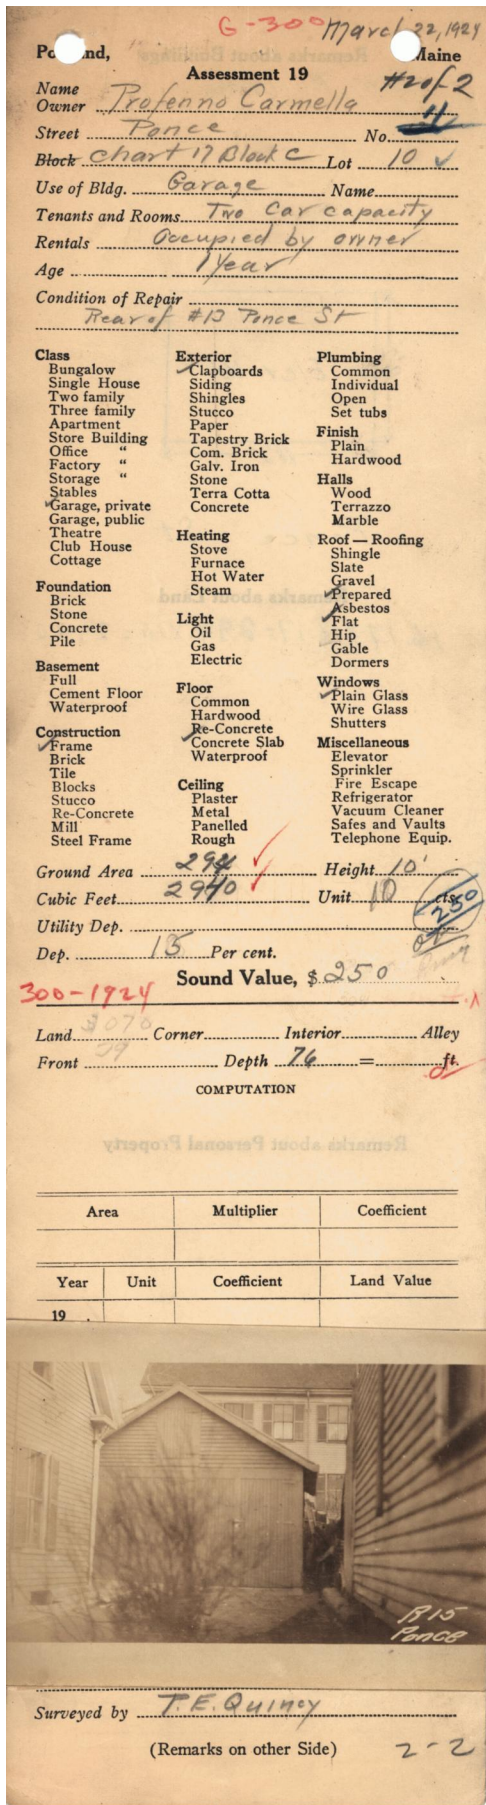 G-300 March 22, 1924
Po nd, Maine
Assessment 19 #2 of 2
Name
Owner Profenno Carmella
Street Ponce No. 11
Block chart 17 Block C Lot 10 ✓
Use of Bldg. Garage Name
Tenants and Rooms Two Car capacity
Rentals Occupied by owner
Age 1 Year
Condition of Repair
Rear of #13 Ponce St
Class
Bungalow
Single House
Two family
Three family
Apartment
Store Building
Office "
Factory "
Storage "
Stables
✓Garage, private
Garage, public
Theatre
Club House
Cottage
Foundation
Brick
Stone
Concrete
Pile
Basement
Full
Cement Floor
Waterproof
Construction
✓Frame
Brick
Tile
Blocks
Stucco
Re-Concrete
Mill
Steel Frame
Exterior
✓Clapboards
Siding
Shingles
Stucco
Paper
Tapestry Brick
Com. Brick
Galv. Iron
Stone
Terra Cotta
Concrete
Heating
Stove
Furnace
Hot Water
Steam
Light
Oil
Gas
Electric
Floor
Common
Hardwood
Re-Concrete
✓Concrete Slab
Waterproof
Ceiling
Plaster
Metal
Panelled
Rough
Plumbing
Common
Individual
Open
Set tubs
Finish
Plain
Hardwood
Halls
Wood
Terrazzo
Marble
Roof — Roofing
Shingle
Slate
Gravel
✓Prepared
Asbestos
✓Flat
Hip
Gable
Dormers
Windows
✓Plain Glass
Wire Glass
Shutters
Miscellaneous
Elevator
Sprinkler
Fire Escape
Refrigerator
Vacuum Cleaner
Safes and Vaults
Telephone Equip.
Ground Area 294 ✓ Height 10'
Cubic Feet 2940 ✓ Unit 10 cts.
250
Utility Dep.
Dep. 15 Per cent.
Sound Value, $ 250
300-1924
Land Corner Interior Alley
Front Depth 76 = ft.
COMPUTATION
Area Multiplier Coefficient
Year Unit Coefficient Land Value
19 .
R 15
Ponce
Surveyed by T. E. Quincy
(Remarks on other Side) 2-2